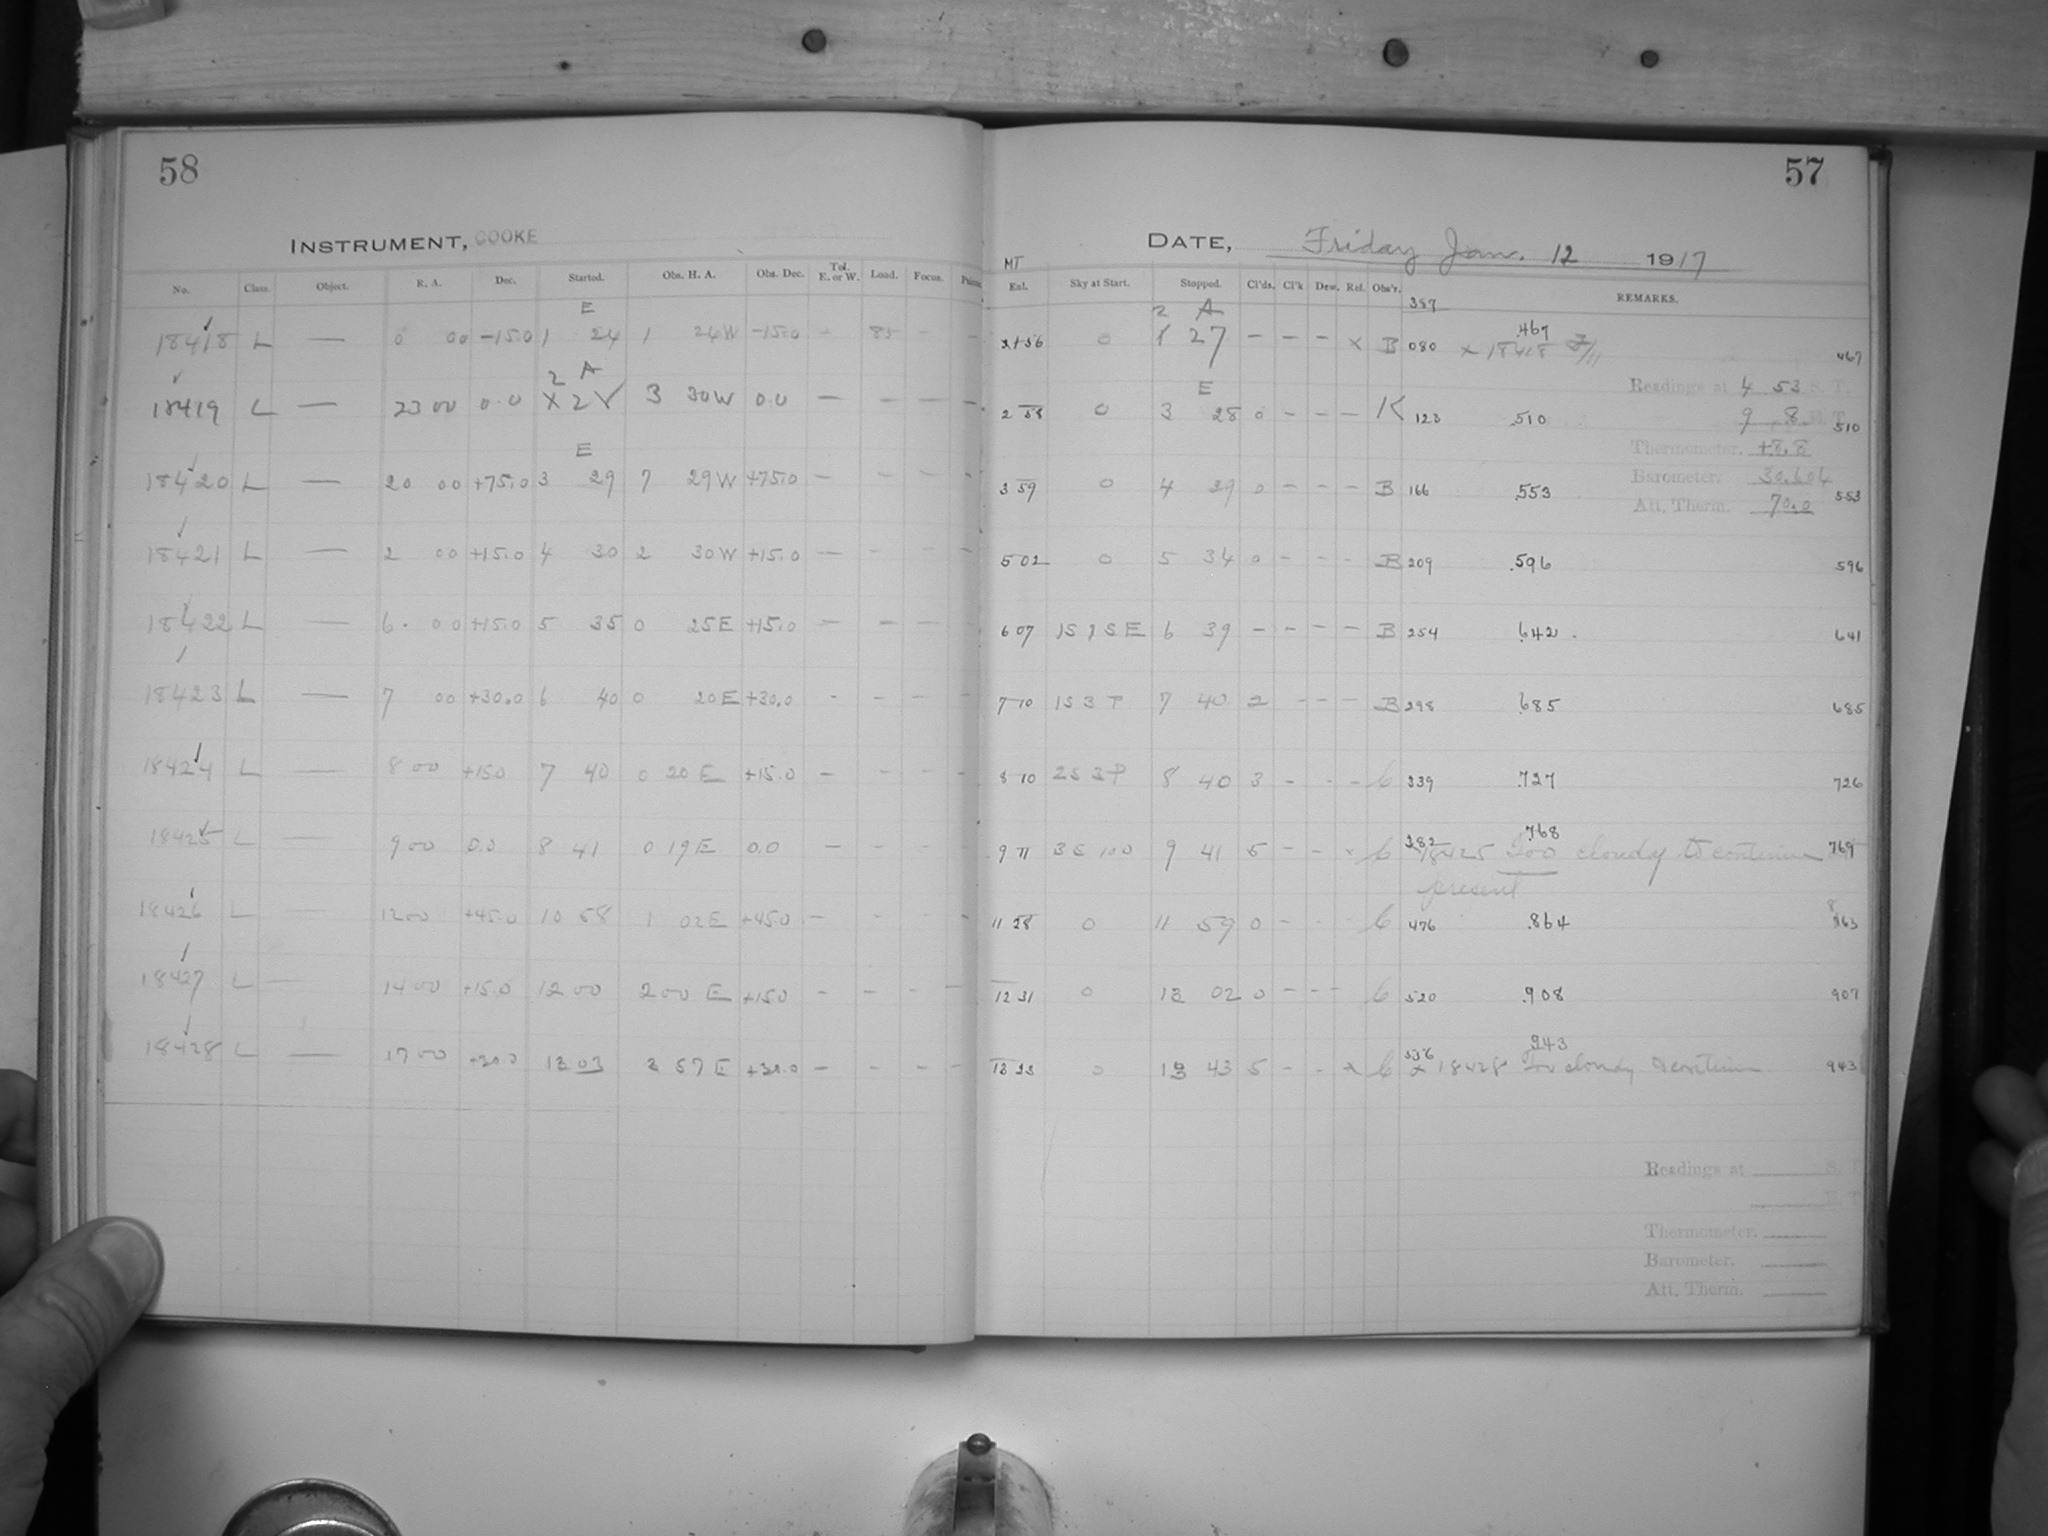 58
57
INSTRUMENT, COOKE
DATE, Friday Jan. 12 1917
No. Class. Object. R. A. Dec. Started. Obs. H. A. Obs. Dec. Tel. E. or W. Load. Focus.
MT
Exl. Sky at Start. Stopped. Cl'ds. Cl'k Dew. Ref. Obs'r. REMARKS.
387
E
2 A
18418 L — 0 00 -15.0 1 24 1 24W -15.0 - 85 - -
0 1 27 - - - x B 080 x 18418 .467 467
2 A
Readings at 4 53 S. T.
18419 L — 23 00 0.0 X 2 3 30W 0.0 — - - -
E
2 58 0 3 28 0 - - - K 123 .510 9 8 510
Thermometer. +8.8
E
18420 L — 20 00 +75.0 3 29 7 29W +75.0 — - - -
Barometer. 30.604
3 59 0 4 29 0 - - - B 166 .553 553
Att. Therm. 70.0
18421 L — 2 00 +15.0 4 30 2 30W +15.0 — - - -
5 02 0 5 34 0 - - - B 209 .596 596
18422 L — 6 00 +15.0 5 35 0 25E +15.0 — - - -
6 07 1S 95 E 6 39 - - - - B 254 .642 641
18423 L — 7 00 +30.0 6 40 0 20E +30.0 - - - -
7 10 1S 3 P 7 40 2 - - - B 298 .685 685
18424 L — 8 00 +15.0 7 40 0 20 E +15.0 - - - -
8 10 2S 3 P 8 40 3 - - - C 339 .727 726
18425 L — 9 00 0.0 8 41 0 19 E 0.0 - - - -
9 11 3S 100 9 41 5 - - x C 382 .768 769
18425 Too cloudy to continue
present
18426 L — 12 00 +45.0 10 58 1 02E +45.0 - - - -
11 28 0 11 59 0 - - - C 476 .864 863
18427 L — 14 00 +15.0 12 00 2 00 E +15.0 - - - -
12 31 0 13 02 0 - - - C 520 .908 907
18428 L — 17 00 +30.0 13 03 3 57 E +30.0 - - - -
13 23 0 13 43 5 - - x C 536 .943 943
x 18428 Too cloudy to continue
Readings at S. T.
Thermometer.
Barometer.
Att. Therm.